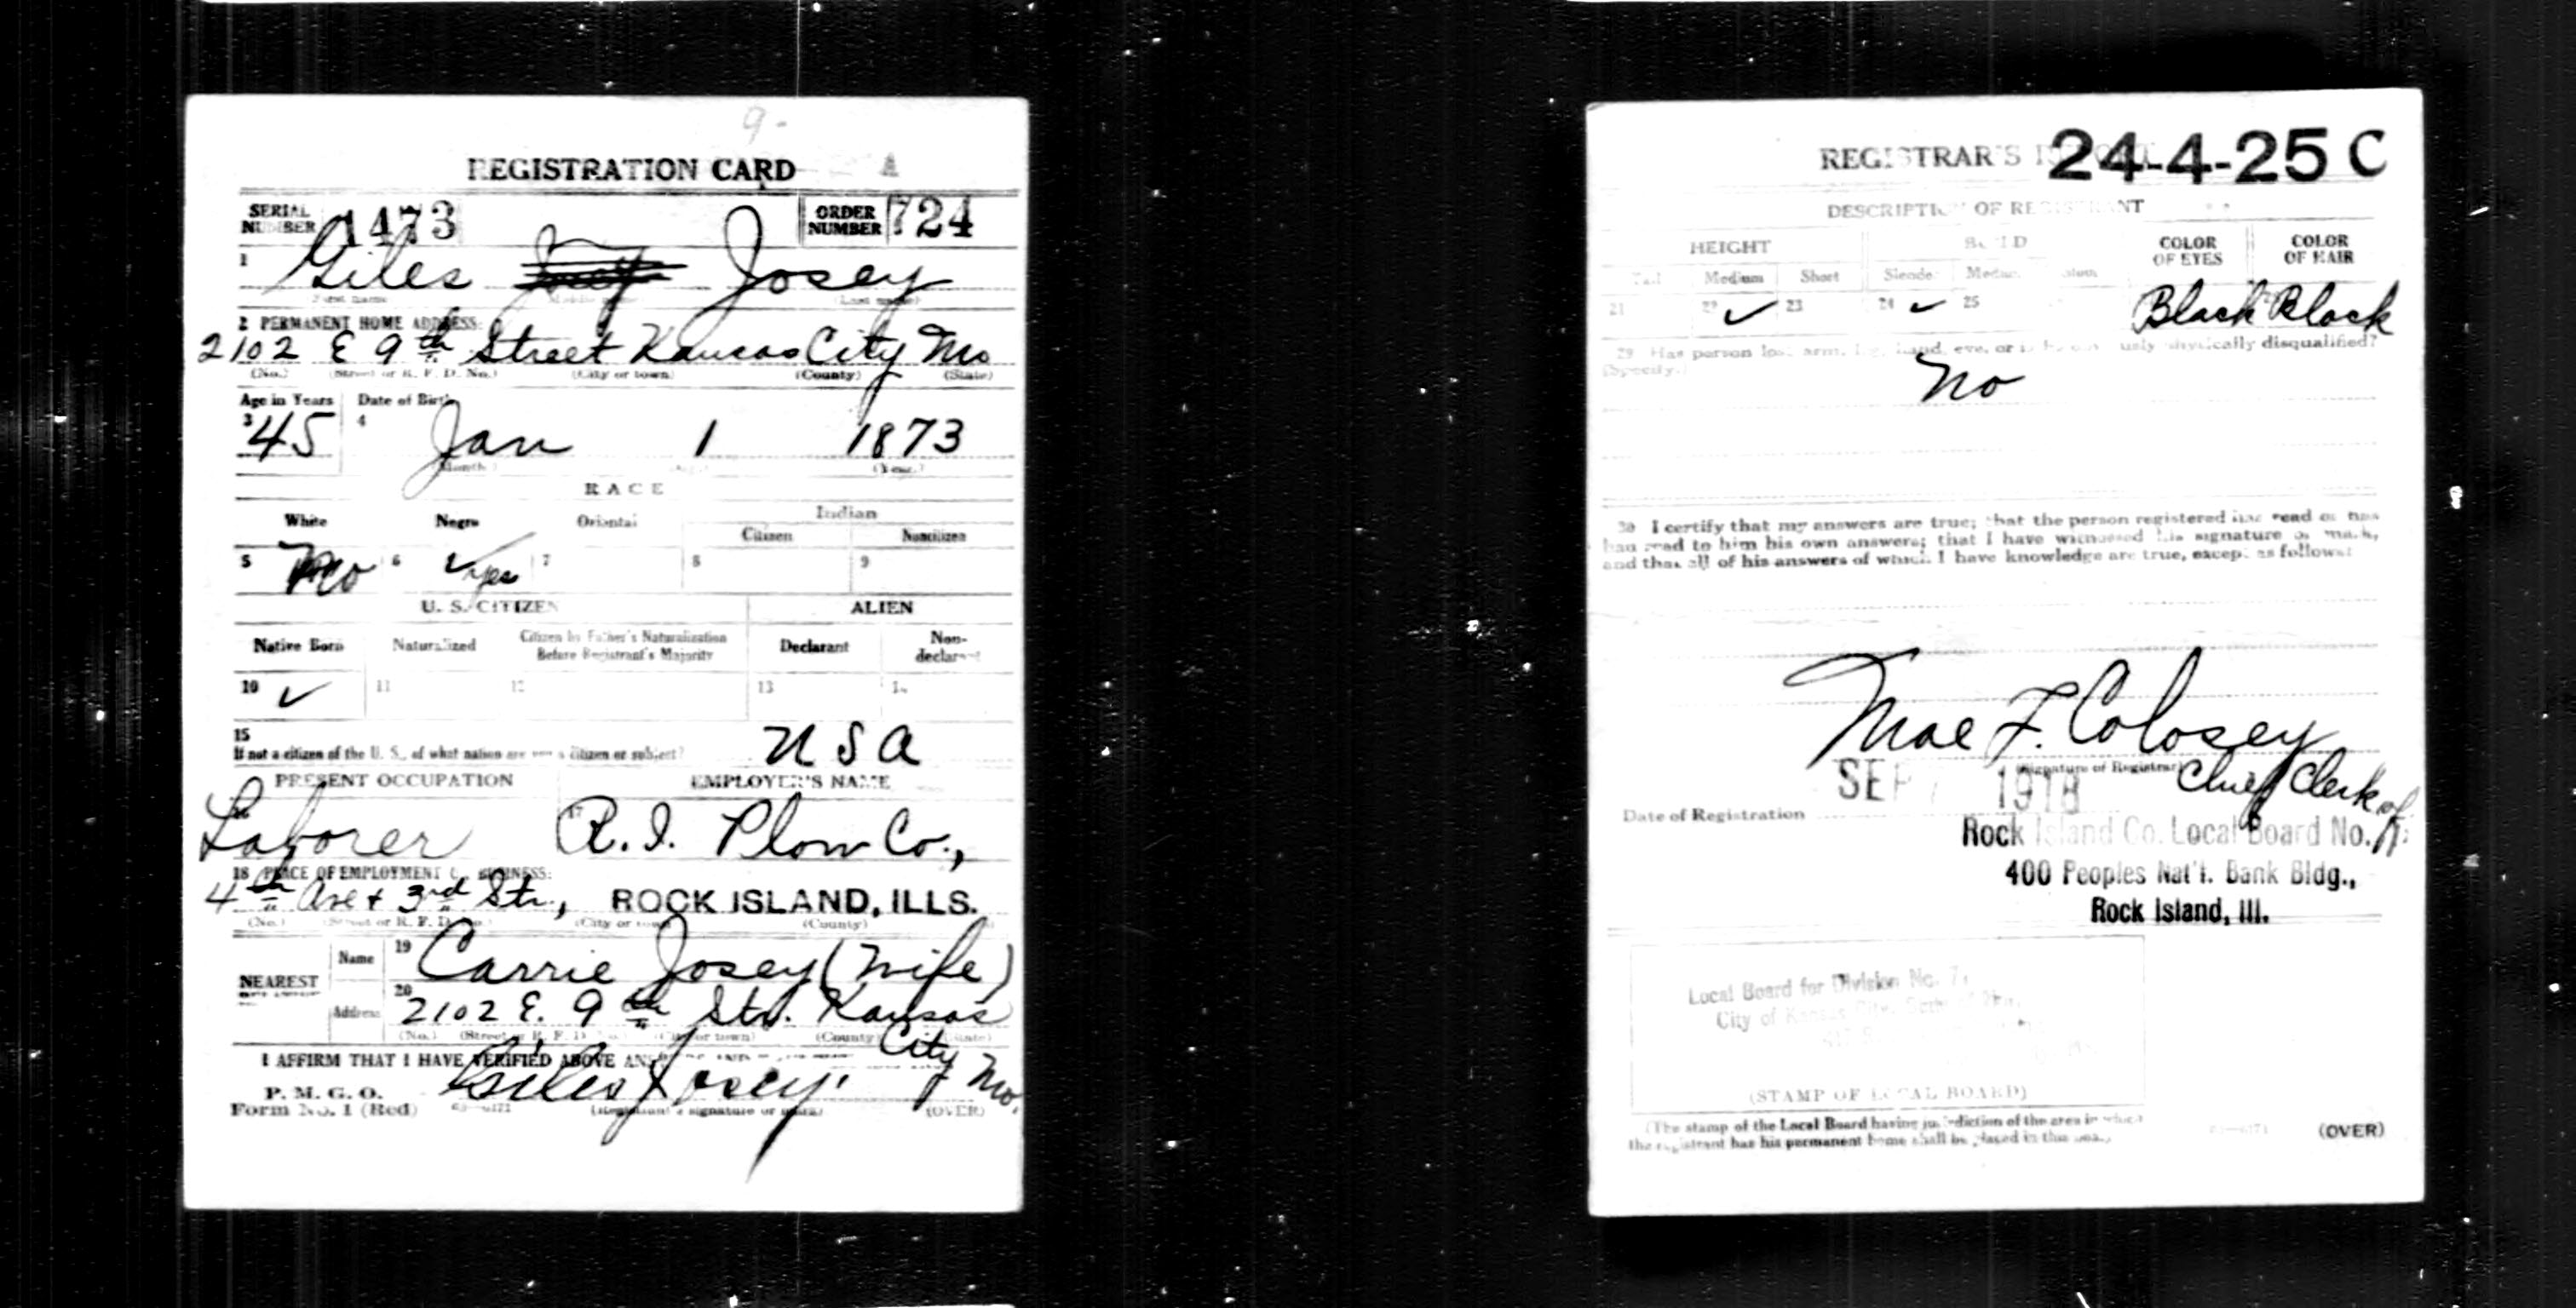 9-
REGISTRATION CARD A
SERIAL NUMBER 1473 ORDER NUMBER 724
1 Giles Josey
First name Middle name (Last name)
2 PERMANENT HOME ADDRESS:
2102 E 9th Street Kansas City Mo
(No.) (Street or R. F. D. No.) (City or town) (County) (State)
Age in Years Date of Birth
3 45 4 Jan 1 1873
(Month.) (Year.)
RACE
White Negro Oriental Indian
Citizen Noncitizen
5 No 6 ✓ yes 7 8 9
U. S. CITIZEN ALIEN
Native Born Naturalized Citizen by Father's Naturalization Before Registrant's Majority Declarant Non-declarant
10 ✓ 11 12 13 14
15 USA
If not a citizen of the U. S., of what nation are you a citizen or subject?
PRESENT OCCUPATION EMPLOYER'S NAME
Laborer 17 R. I. Plow Co.,
18 PLACE OF EMPLOYMENT BUSINESS:
4th Ave & 3rd Str., ROCK ISLAND, ILLS.
(No.) (Street or R. F. D. No.) (City or town) (County)
NEAREST Name 19 Carrie Josey (Wife)
Address 20 2102 E. 9th Str. Kansas
(No.) (Street or R. F. D. (City or town) (County) (State)
City Mo.
I AFFIRM THAT I HAVE VERIFIED ABOVE
P. M. G. O. Giles Josey
Form No. 1 (Red) 03-6171 (Registrant's signature or mark) (OVER)
REGISTRAR'S 24-4-25 C
DESCRIPTION OF REGISTRANT
HEIGHT BUILD COLOR OF EYES COLOR OF HAIR
Tall Medium Short Slender Medium
21 22 ✓ 23 24 ✓ 25 Black Black
29 Has person lost arm, leg, hand, eye, or physically disqualified?
(Specify.)
No
30 I certify that my answers are true; that the person registered has read or has
had read to him his own answers; that I have witnessed his signature or mark,
and that all of his answers of which I have knowledge are true, except as follows:
Mae F. Colosey
(Signature of Registrar)
Chief Clerk of
Date of Registration SEP 1918
Rock Island Co. Local Board No. 1.
400 Peoples Nat'l. Bank Bldg.,
Rock Island, Ill.
Local Board for Division No. 7,
City of Kansas City,
(STAMP OF LOCAL BOARD)
(The stamp of the Local Board having jurisdiction of the area in which
the registrant has his permanent home shall be placed in this box.)
03-6171 (OVER)